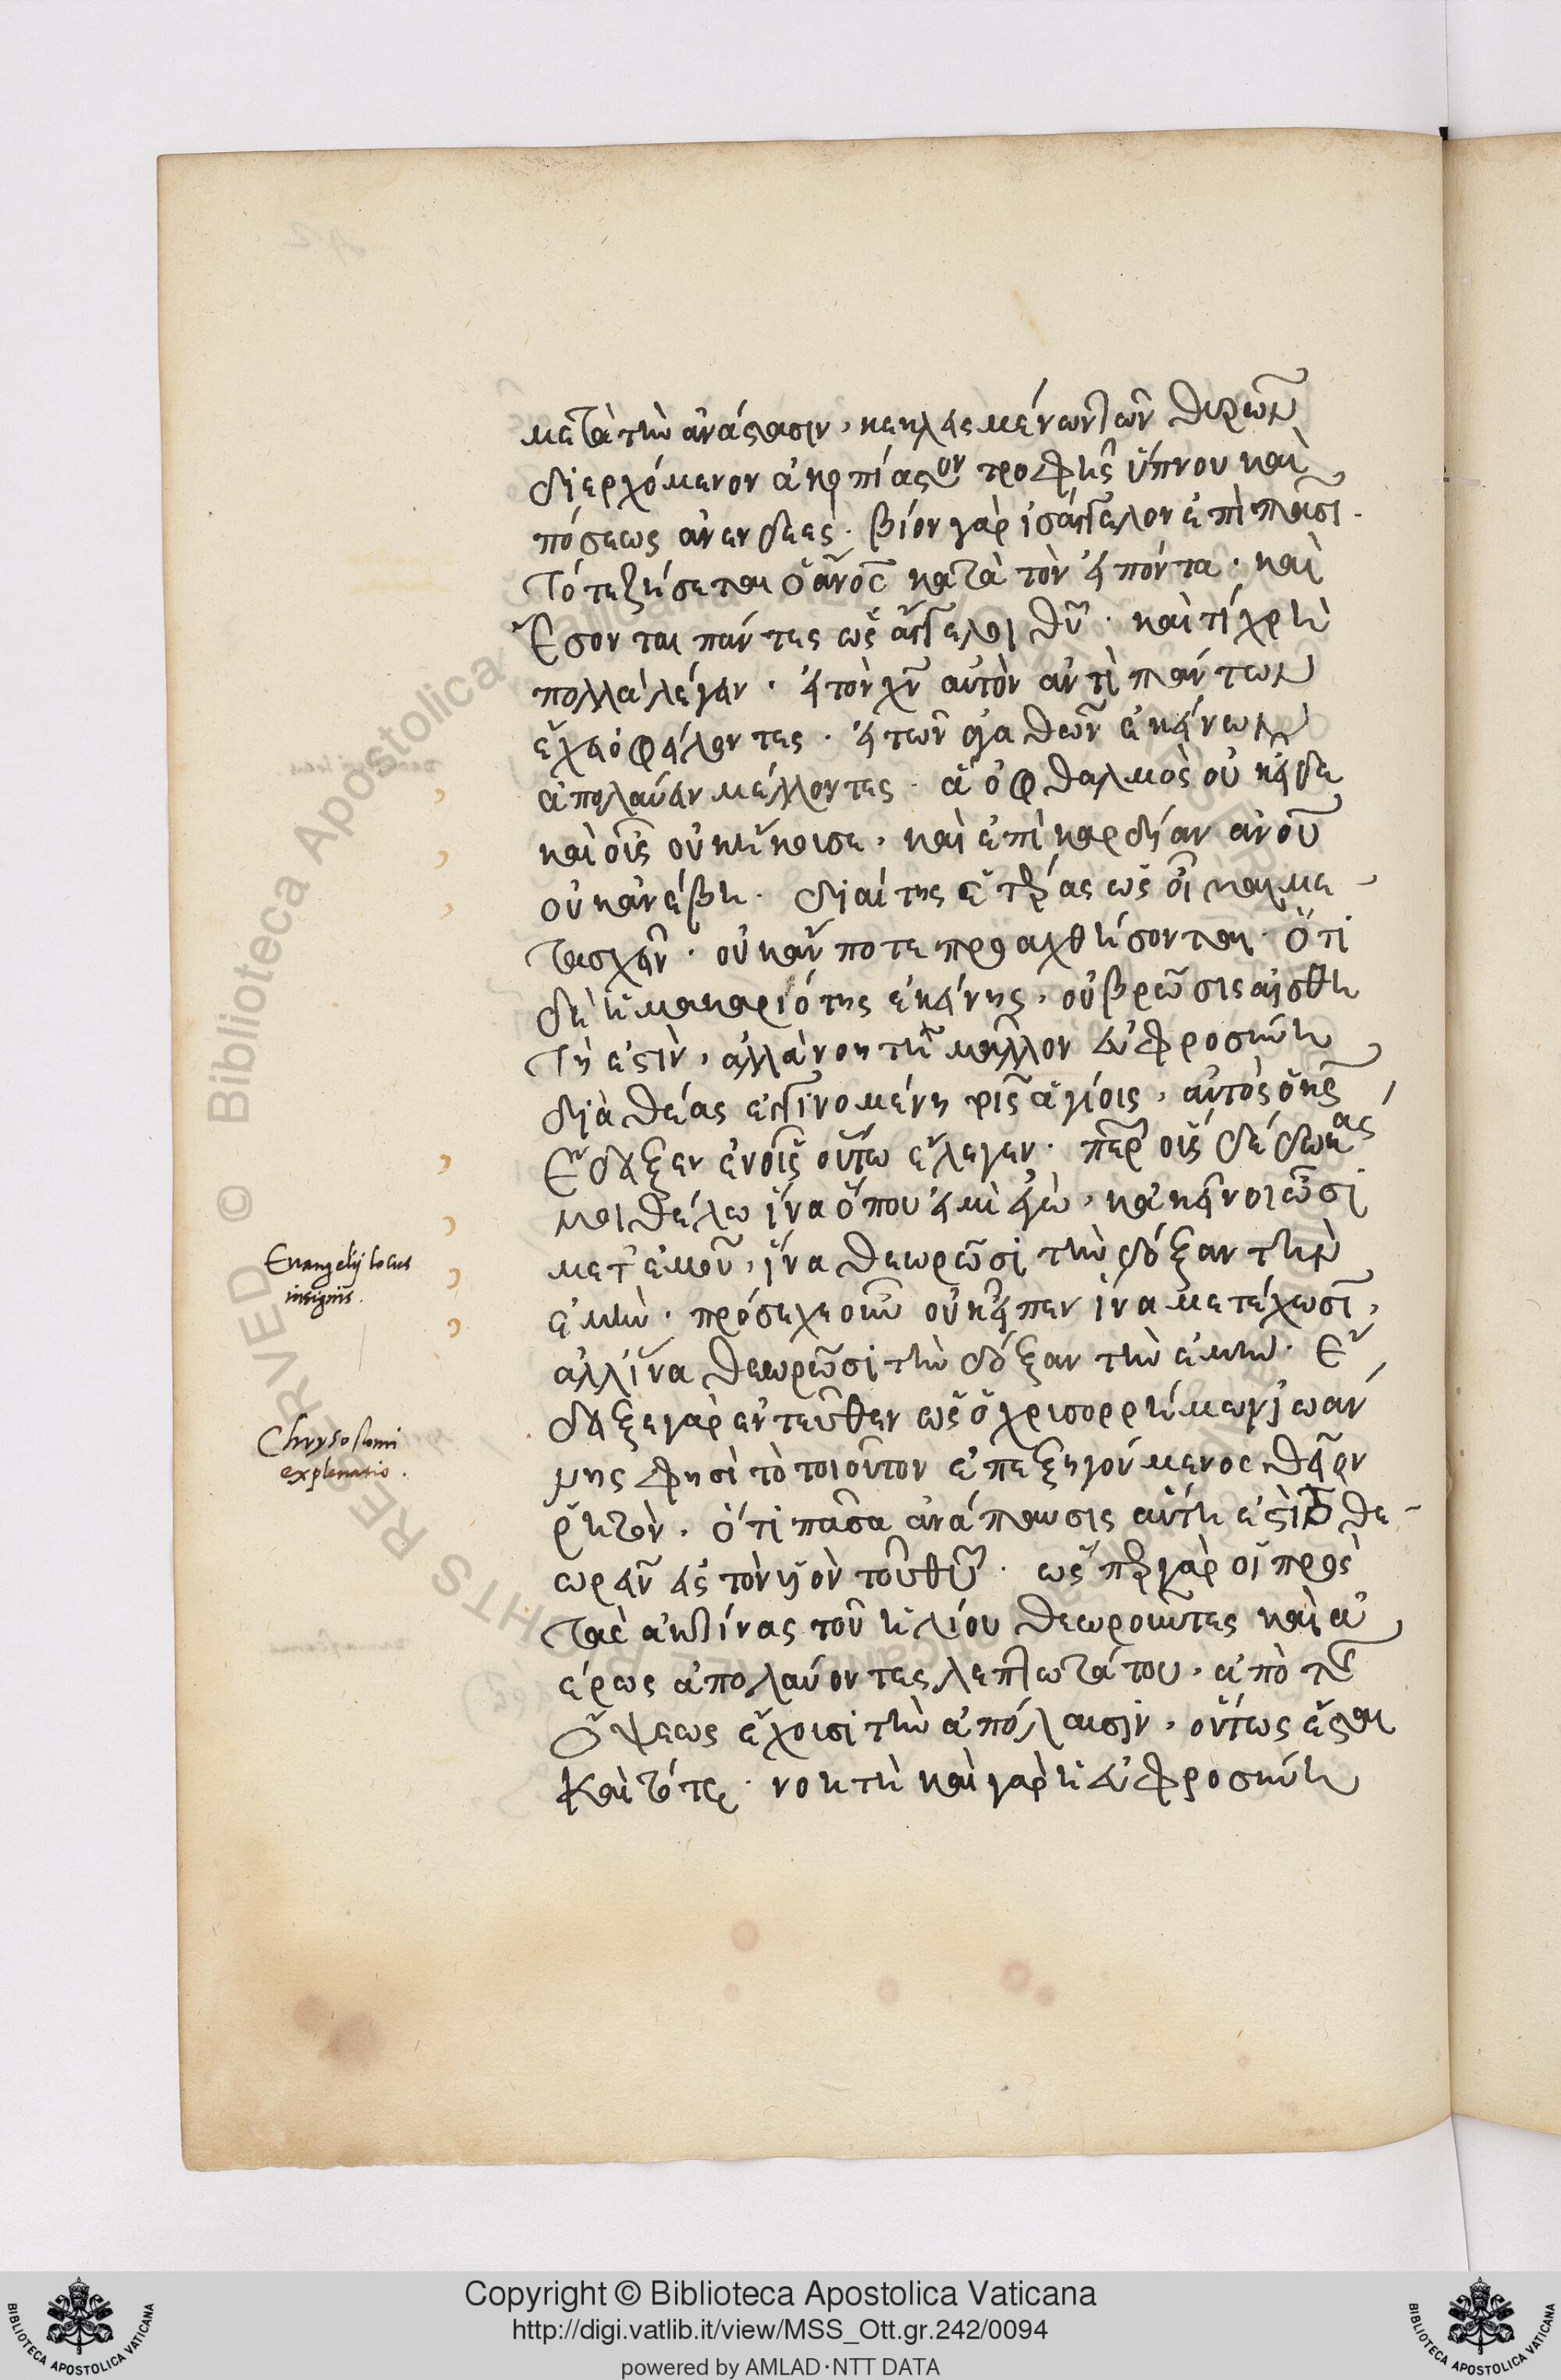 μετὰ τὴν ἀνάστασιν, κεκλεισμένων τῶν θυρῶν
διερχόμενον ἀκοπίαστον τροφῆς ὕπνου καὶ
πόσεως ἀνενδεές. βίον γὰρ ἰσάγγελον ἐπὶ πᾶσι.
τότε ζήσεται ὁ ἄνος κατὰ τὸν εἰπόντα. καὶ
ἔσονται πάντες ὡς ἄγγελοι θυ. καὶ τί χρὴ
πολλὰ λέγειν. εἰ τὸν χν αὐτὸν ἀντὶ πάντων
ἔχειν ὀφείλοντες. εἰ τῶν ἀγαθῶν ἐκείνων
ἀπολαύειν μέλλοντες. ἃ ὀφθαλμὸς οὐκ εἶδε
καὶ οὖς οὐκ ἤκουσε, καὶ ἐπὶ καρδίαν ἀνου
οὐκ ἀνέβη. διαίτης ἑτέρας ὡς οἷόν καὶ με
τασχεῖν. οὐκ ἄν ποτε προσαχθήσονται. ὅτι
δὲ ἡ μακαριότης ἐκείνης, οὐ βρῶσις αἰσθη
τή ἐστιν, ἀλλὰ νοητὴ μᾶλλον εὐφροσύνη
διὰ θέας ἐγγινομένη τοῖς ἁγίοις, αὐτὸς ὁ κς
ἔδειξεν ἐν οἷς οὕτω ἔλεγεν. περ οὓς δέδωκας
μοι θέλω ἵνα ὅπου εἰμὶ ἐγὼ, κἀκεῖνοι ὦσι
μετ' ἐμοῦ, ἵνα θεωρῶσι τὴν δόξαν τὴν
ἐμήν. πρόσεχε οὖν οὐκ εἶπεν ἵνα μετέχωσι,
ἀλλ' ἵνα θεωρῶσι τὴν δόξαν τὴν ἐμήν. ἔ
δειξε γὰρ ἐντεῦθεν ὡς ὁ χρυσορρήμων ἰωάν
νης φησὶ τὸ τοιοῦτον ἐπεξηγούμενος θεῖον
ῥητόν. ὅτι πᾶσα ἀνάπαυσις αὕτη ἐστὶ τὸ θε
ωρεῖν εἰς τὸν υἱὸν τοῦ θυ. ὥσπερ γὰρ οἱ πρὸς
τὰς ἀκτίνας τοῦ ἡλίου θεωροῦντες καὶ ἀ
έρος ἀπολαύοντες λεπτοτάτου, ἀπὸ τῆς
ὄψεως ἔχουσι τὴν ἀπόλαυσιν, οὕτως ἔσται
καὶ τότε. νοητὴ καὶ γὰρ ἡ εὐφροσύνη
Euangelij locus
insignis.
Chrysostomi
explenatio.
RIGHTS RESERVED © Biblioteca Apostolica Vaticana
Copyright © Biblioteca Apostolica Vaticana
http://digi.vatlib.it/view/MSS_Ott.gr.242/0094
powered by AMLAD·NTT DATA
BIBLIOTECA APOSTOLICA VATICANA
BIBLIOTECA APOSTOLICA VATICANA